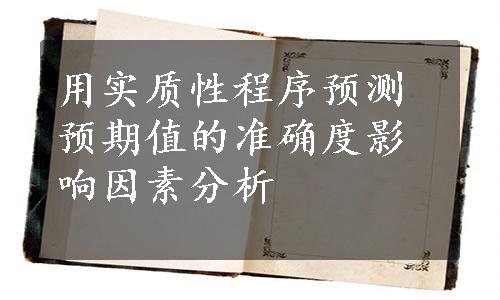 用实质性程序预测
预期值的准确度影
响因素分析